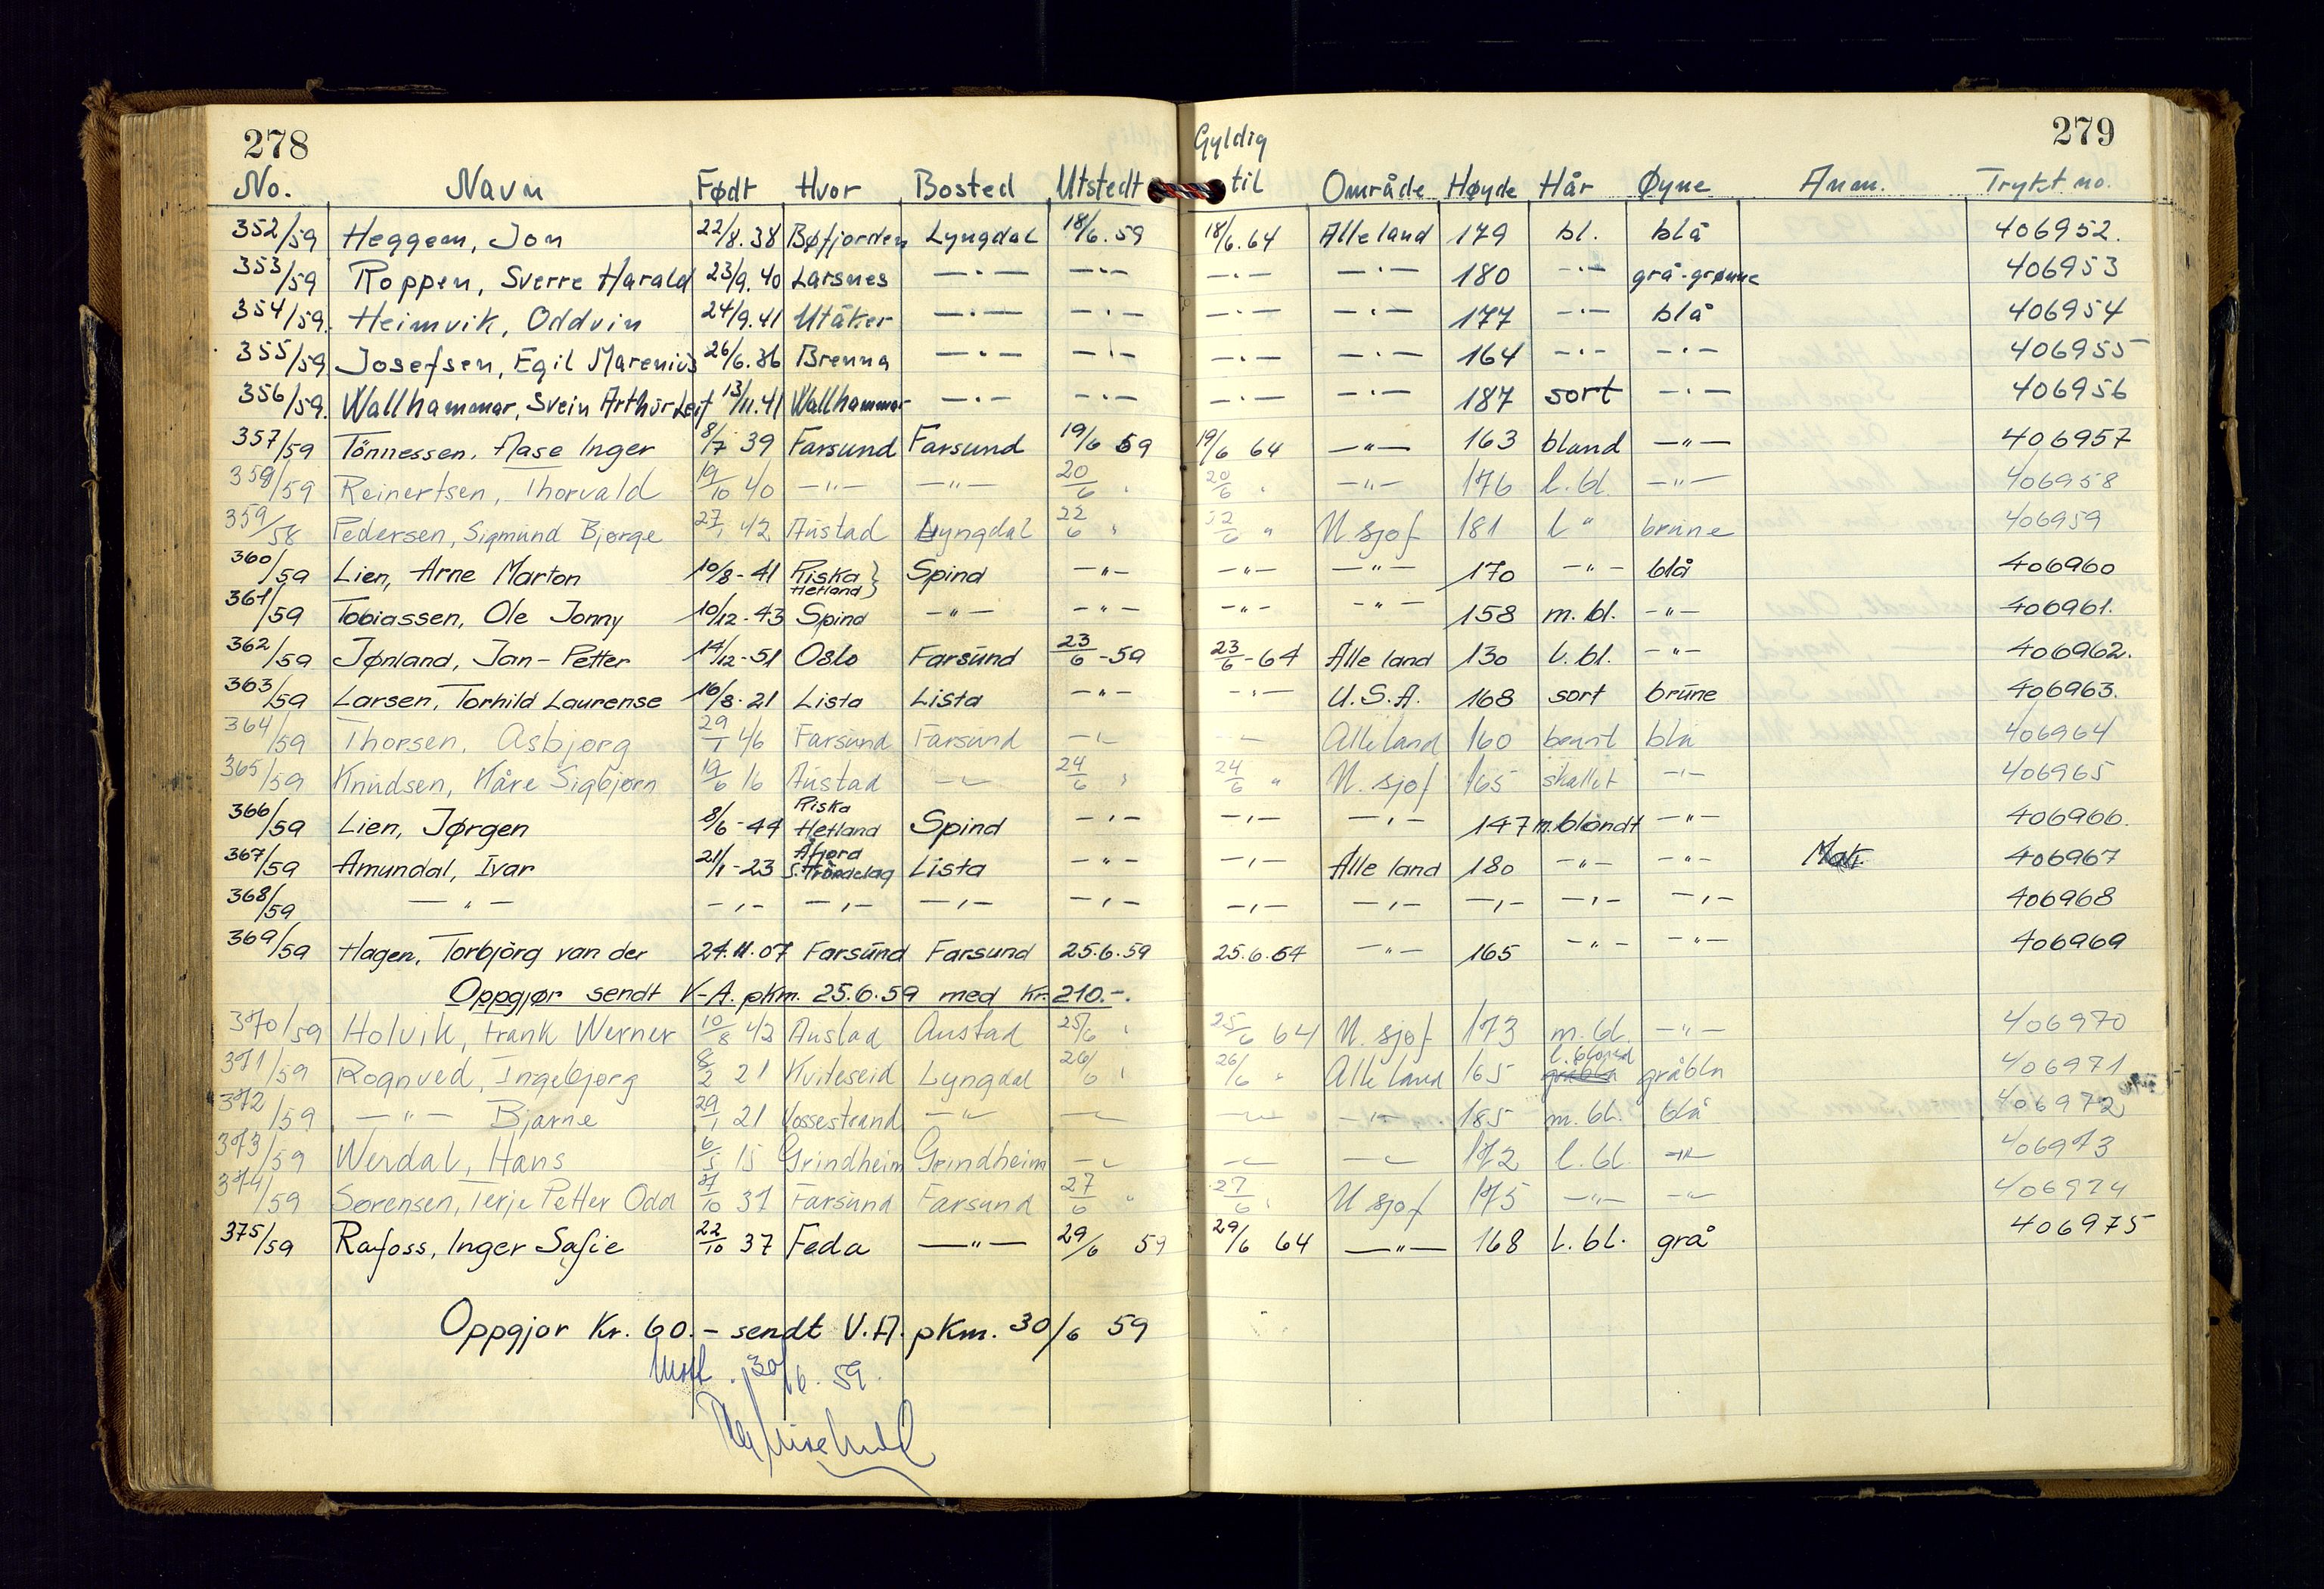 278
279
Gyldig
No. Navn Født Hvor Bosted Utstedt til Område Høyde Hår Øyne Anm. Trykt no.
352/59 Heggem, Jon 22/8.38 Bøfjorden Lyngdal 18/6.59 18/6.64 Alle land 179 bl. blå 406952.
353/59 Roppen, Sverre Harald 23/9.40 Larsnes —·— —·— —·— —·— 180 —·— grå-grønne 406953
354/59. Heimvik, Oddvin 24/9.41 Utåker —·— —·— —·— —·— 177 —·— blå 406954
355/59 Josefsen, Egil Marenius 26/6.36 Brenna —·— —·— —·— —·— 164 —·— —·— 406955
356/59. Wallhammar, Svein Arthur Leif 13/11.41 Wallhammar —·— —·— —·— —·— 187 sort —·— 406956
357/59 Tönnessen, Aase Inger 8/7 39 Farsund Farsund 19/6 59 19/6 64 —"— 163 bland —"— 406957
358/59 Reinertsen, Thorvald 19/10 40 —"— —"— 20/6 " 20/6 " —"— 176 l. bl. —"— 406958
359/58 Pedersen, Sigmund Bjørge 27/1 42 Austad Lyngdal 22/6 " 22/6 " U. sjøf 181 l " brune 406959
360/59 Lien, Arne Marton 10/8-41 Riska Hetland } Spind —"— —"— —"— 170 —"— blå 406960
361/59 Tobiassen, Ole Jonny 10/12-43 Spind —"— —"— —"— —"— 158 m. bl. —"— 406961.
362/59 Jønland, Jan-Petter 14/12-51 Oslo Farsund 23/6-59 23/6-64 Alle land 130 l. bl. —"— 406962.
363/59 Larsen, Torhild Laurense 16/8-21 Lista Lista —"— —"— U.S.A. 168 sort brune 406963.
364/59 Thorsen, Asbjørg 29/1 46 Farsund Farsund —"— —"— Alle land 160 brunt blå 406964
365/59 Knudsen, Kåre Sigbjørn 19/6 16 Austad —"— 24/6 " 24/6 " U. sjøf 165 skallet —"— 406965
366/59 Lien, Jørgen 8/6-44 Riska Hetland Spind —"— —"— —"— 147 m.blondt —"— 406966.
367/59 Amundal, Ivar 21/1-23 Åfjord S. Trøndelag Lista —"— —"— Alle land 180 —"— —"— 406967
368/59 —"— —"— —"— —"— —"— —"— —"— —"— —"— —"— 406968
369/59 Hagen, Torbjörg van der 24.11.07 Farsund Farsund 25.6.59 25.6.64 —"— 165 —"— —"— 406969
Oppgjør sendt V-A. pkm. 25.6.59 med kr. 210.-.
370/59 Holvik, Frank Werner 10/8 42 Austad Austad 25/6 " 25/6 64 U. sjøf 173 m. bl. —"— 406970
371/59 Rognved, Ingebjørg 8/2 21 Kviteseid Lyngdal 26/6 " 26/6 " Alle land 165 l. blond gråblå gråblå 406971
372/59 —"— Bjarne 29/1 21 Vossestrand —"— —"— —"— —"— 185 m. bl. blå 406972
373/59 Werdal, Hans 6/5 15 Grindheim Grindheim —"— —"— —"— 172 l. bl. —"— 406973
374/59 Sørensen, Terje Petter Odd 7/10 37 Farsund Farsund 27/6 " 27/6 " U sjøf 175 —"— —"— 406974
375/59 Rafoss, Inger Sofie 22/10 37 Feda —"— 29/6 59 29/6 64 —"— 168 l. bl. grå 406975
Oppgjør Kr. 60.- sendt V.A. pkm. 30/6 59
30/6. 59.